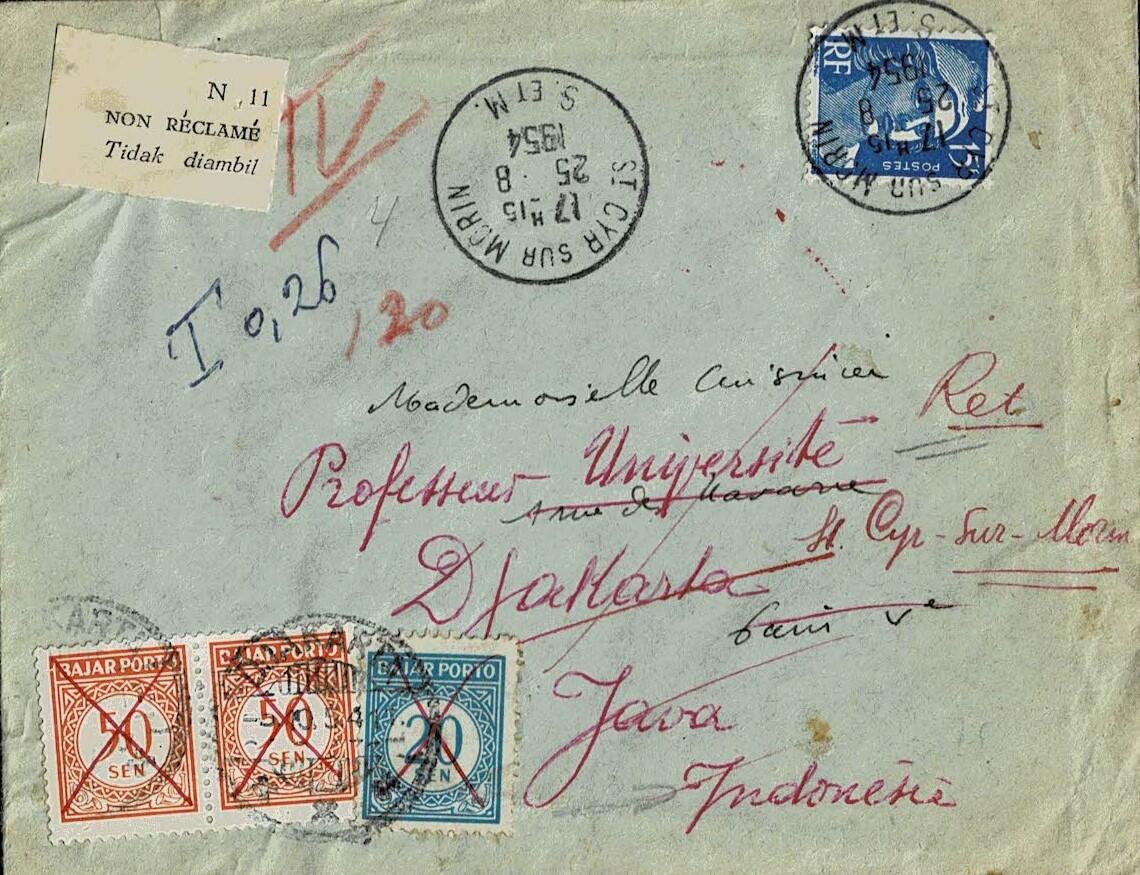 N . 11
NON RÉCLAMÉ
Tidak diambil
IV
4
T 0,26
,20
ST CYR SUR MORIN
17 H 15
25 8
1954
S. ET M.
RF
POSTES
15F
ST CYR SUR MORIN
17 H 15
25 8
1954
S. ET M.
Mademoiselle Cuisinier
Ret
Professeur Université
4 rue de Navarre
St. Cyr-Sur-Morin
Djakarta
Paris Ve
Java
Indonésie
BAJAR PORTO
50
SEN
BAJAR PORTO
50
SEN
BAJAR PORTO
20
SEN